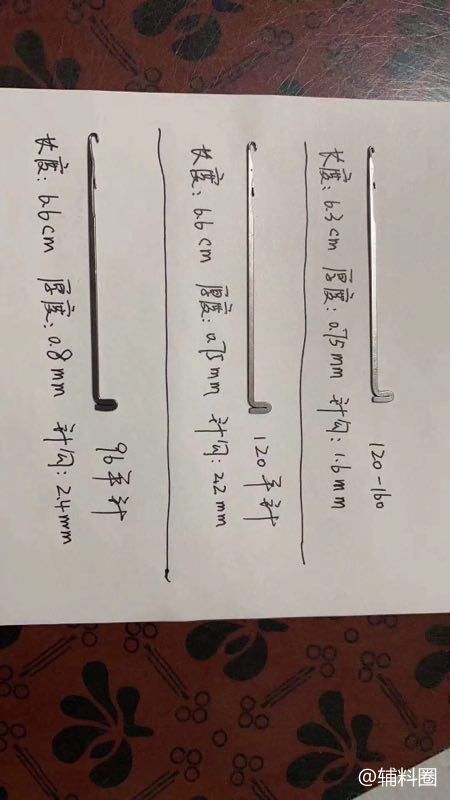 120-160
长度: 6.3cm 厚度: 0.75mm 针勾: 1.6mm
120平针
长度: 6.6cm 厚度: 0.75mm 针勾: 2.2mm
96平针
长度: 6.6cm 厚度: 0.8mm 针勾: 2.4mm
@辅料圈